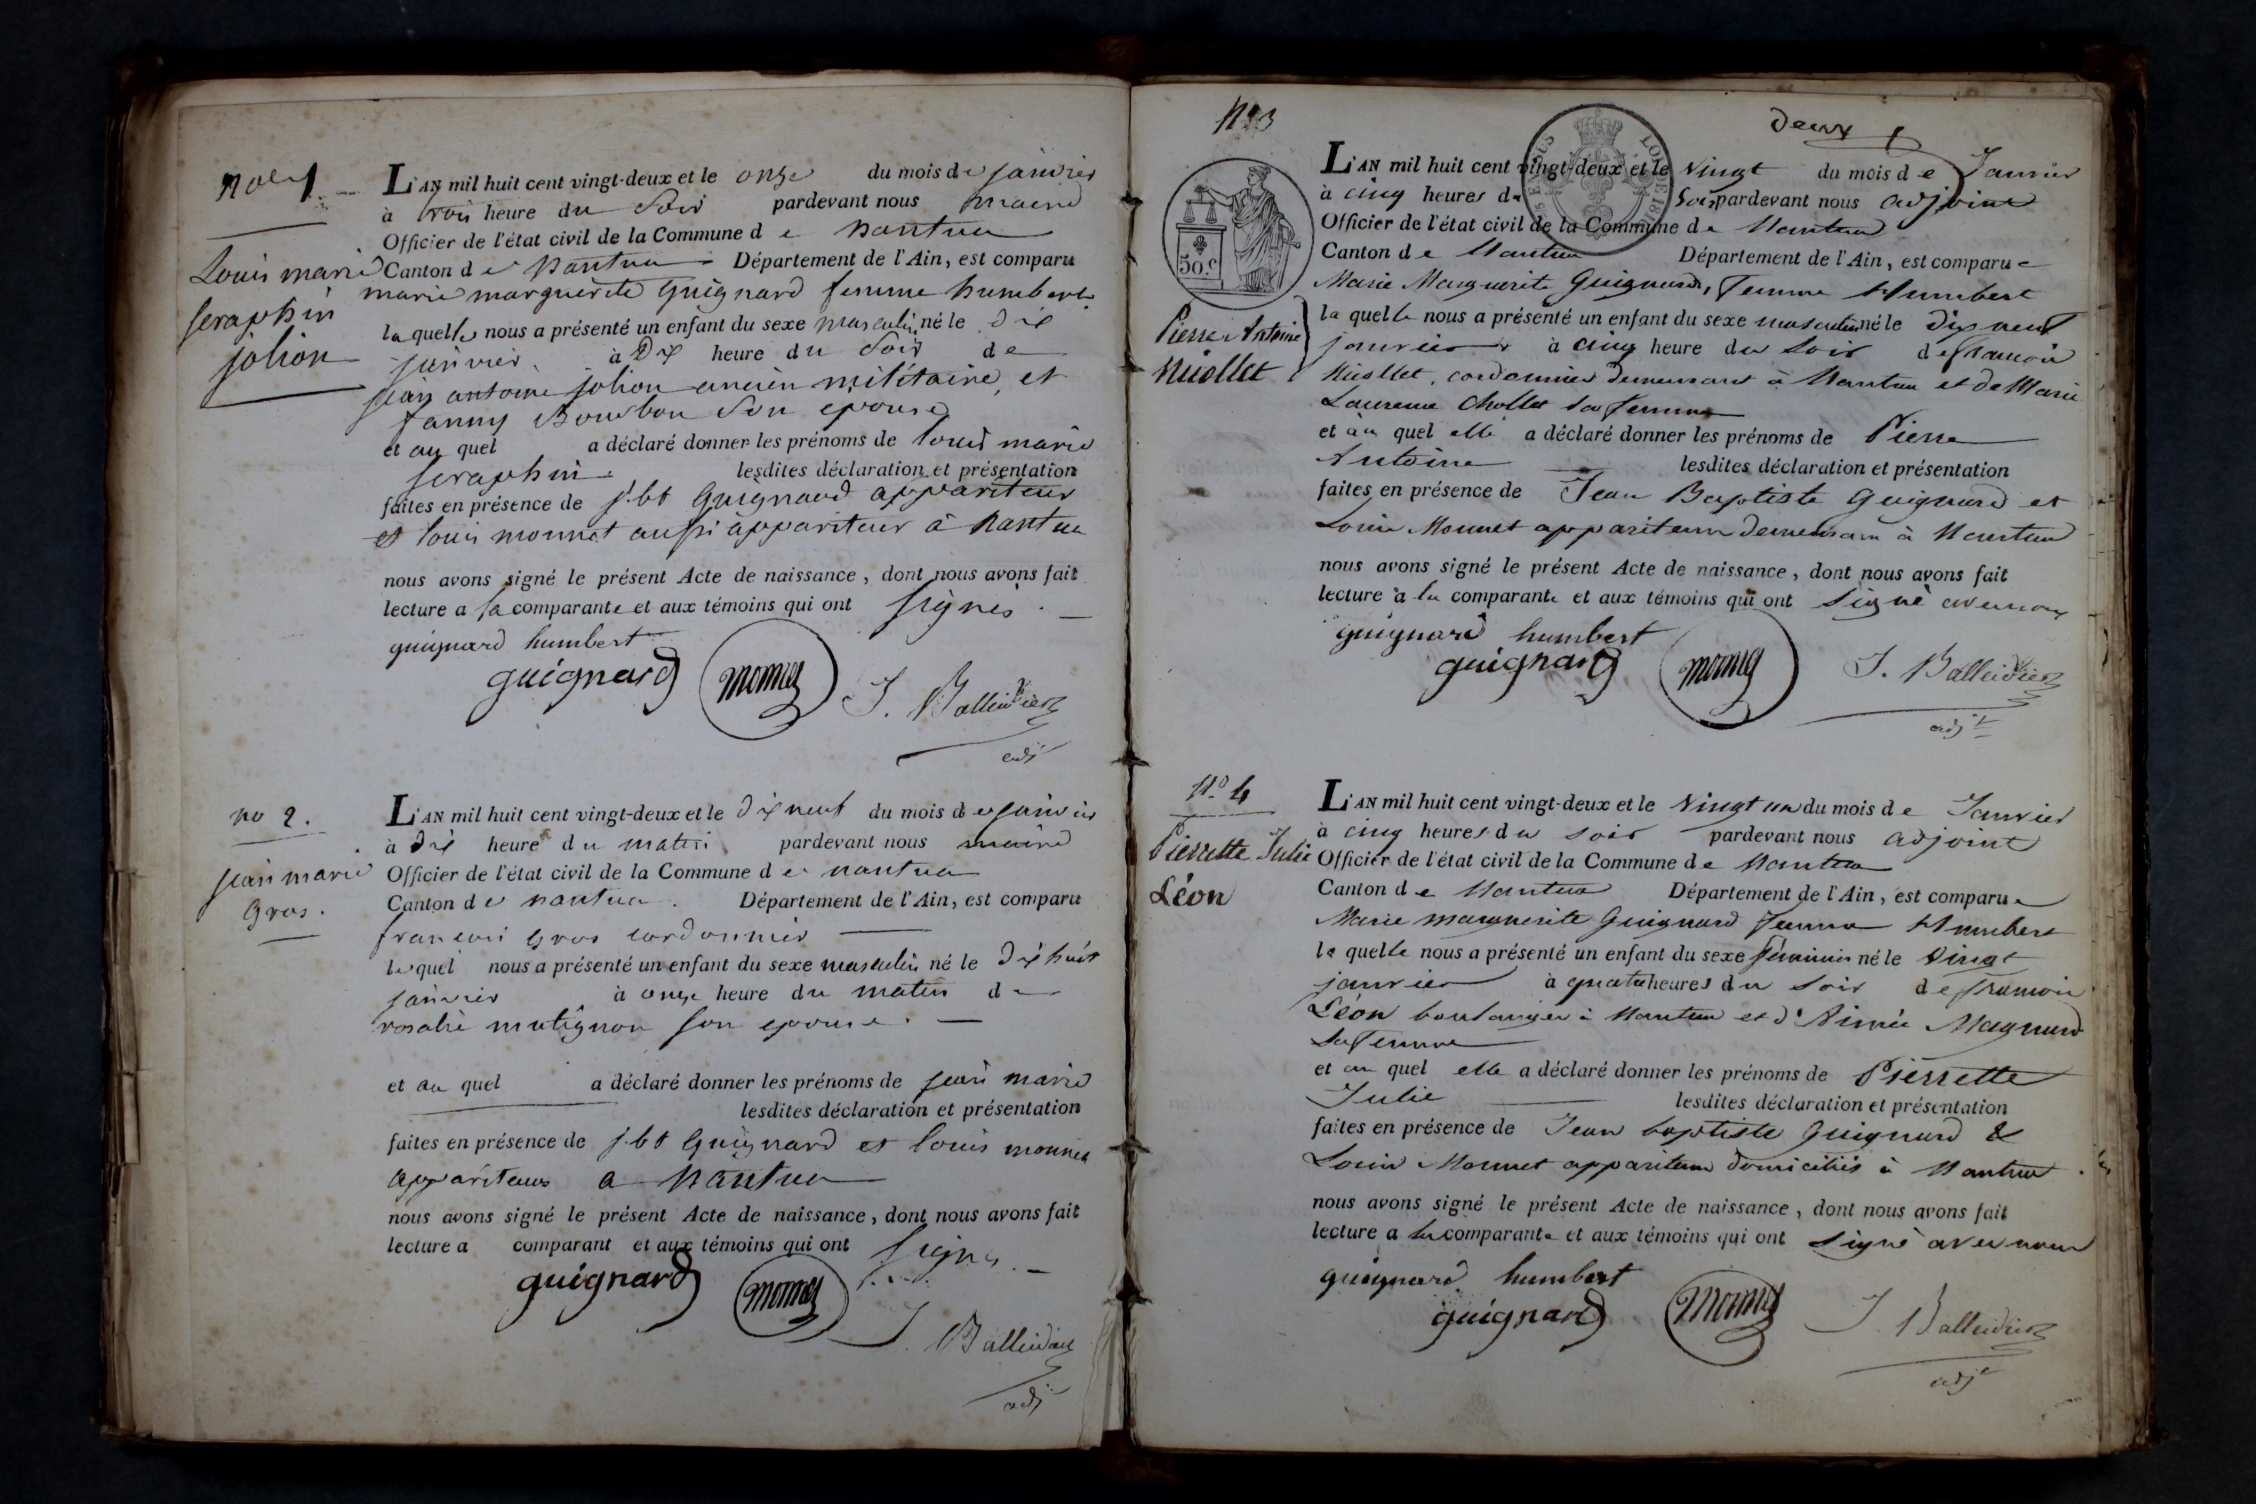 no 1.
Louis marie
seraphin
jolion
L'AN mil huit cent vingt-deux et le onze du mois de janvier
à trois heure du soir pardevant nous maire
Officier de l'état civil de la Commune de nantua
Canton de nantua Département de l'Ain, est comparu
marie marguerite guignard femme humbert
laquelle nous a présenté un enfant du sexe masculin né le dix
janvier à Dix heure du soir de
jean antoine jolion ancien militaire, et
fanny Bourbon son epouse
et au quel a déclaré donner les prénoms de louis marie
seraphin lesdites déclaration et présentation
faites en présence de j. bt guignard appariteur
et louis monnet aussi appariteur à nantua
nous avons signé le présent Acte de naissance, dont nous avons fait
lecture a la comparante et aux témoins qui ont signés.
guignard humbert
guignard monnet J. Balleidier
adj
no 2.
jean marie
gros.
L'AN mil huit cent vingt-deux et le dix neuf du mois de janvier
à dix heure du matin pardevant nous maire
Officier de l'état civil de la Commune de nantua
Canton de nantua. Département de l'Ain, est comparu
francois gros cordonnier
lequel nous a présenté un enfant du sexe masculin né le dix huit
janvier à onze heure du matin de
rosalie matignon son epouse.
et au quel a déclaré donner les prénoms de jean marie
lesdites déclaration et présentation
faites en présence de j. bt guignard et louis monnet
appariteurs a nantua
nous avons signé le présent Acte de naissance, dont nous avons fait
lecture a comparant et aux témoins qui ont signés.
guignard monnet J. Balleidier
adj
N° 3
deux
50.c
Pierre Antoine
Niollet
L'AN mil huit cent vingt-deux et le Vingt du mois de Janvier
à cinq heures du Soir pardevant nous adjoint
Officier de l'état civil de la Commune de Nantua
Canton de Nantua Département de l'Ain, est comparue
Marie Marguerite Guignard, femme Humbert
laquelle nous a présenté un enfant du sexe masculin né le dix neuf
janvier à cinq heure du soir de francois
Niollet, cordonnier demeurant à Nantua et de Marie
Laurence Chollet sa femme
et au quel elle a déclaré donner les prénoms de Pierre
Antoine lesdites déclaration et présentation
faites en présence de Jean Baptiste Guignard et
Louis Monnet appariteurs demeurant à Nantua
nous avons signé le présent Acte de naissance, dont nous avons fait
lecture à la comparante et aux témoins qui ont signé avec nous
guignard humbert
guignard monnet J. Balleidier
adjt
N° 4
Pierrette Julie
Léon
L'AN mil huit cent vingt-deux et le Vingt un du mois de Janvier
à cinq heures du soir pardevant nous adjoint
Officier de l'état civil de la Commune de Nantua
Canton de Nantua Département de l'Ain, est comparue
Marie marguerite Guignard femme Humbert
laquelle nous a présenté un enfant du sexe féminin né le Vingt
janvier à quatre heures du soir de francois
Léon boulanger à Nantua et d'Aimée Magnard
sa femme
et au quel elle a déclaré donner les prénoms de Pierrette
Julie lesdites déclaration et présentation
faites en présence de Jean baptiste Guignard &
Louis Monnet appariteurs domiciliés à Nantua.
nous avons signé le présent Acte de naissance, dont nous avons fait
lecture a la comparante et aux témoins qui ont signé avec nous
guignard humbert
guignard Monnet J. Balleidier
adjt